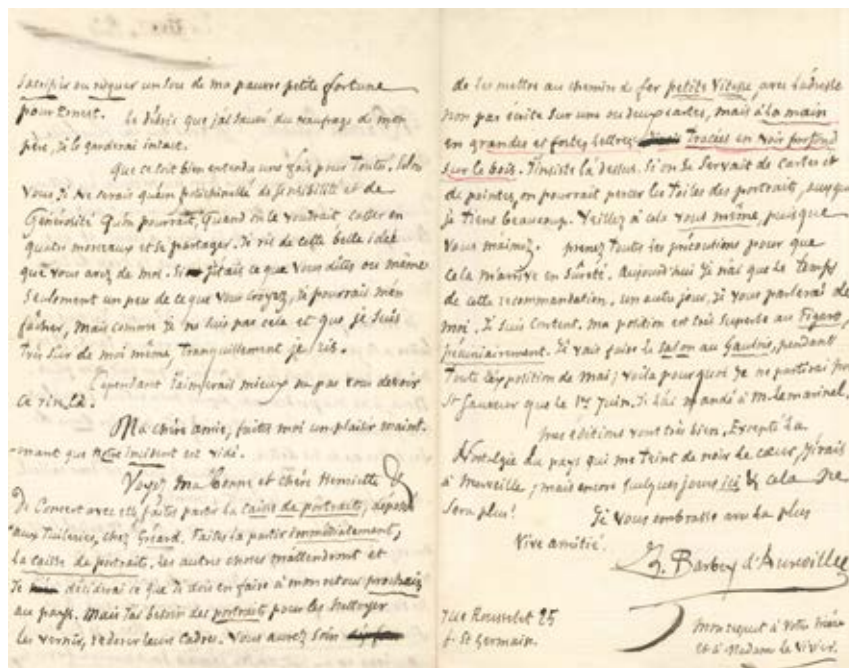 sacrifier ou risquer un sou de ma pauvre petite fortune
pour Ernest. Le débris que j'ai sauvé du naufrage de mon
père, je le garderai intact.
Que ce soit bien entendu une fois pour toutes. Selon
vous, je ne serais qu'un polichinelle de sensibilité et de
Générosité qu'on pourrait, quand on le voudrait casser en
quatre morceaux et se partager. Je ris de cette belle idée
que vous avez de moi. Si j'étais ce que vous dites ou même
seulement un peu de ce que vous croyez, je pourrais m'en
fâcher, mais comme je ne suis pas cela et que je suis
très sûr de moi même, tranquillement je ris.
Cependant j'aimerais mieux ne pas vous devoir
ce rire là.
Ma chère amie, faites moi un plaisir maint-
nant que notre incident est vidé.
Voyez ma bonne et chère Henriette &
De Concert avec elle faites partir la caisse de portraits, déposée
aux Tuileries, chez Gérard. Faites la partir immédiatement,
la caisse de portraits. Les autres choses m'attendront et
Je déciderai ce que je dois en faire à mon retour prochain
au pays. Mais j'ai besoin des portraits pour les nettoyer
les vernir, redorer leurs cadres. Vous aurez soin
de les mettre au chemin de fer petite vitesse, avec l'adresse
non pas écrite sur une ou deux cartes, mais à la main
en grandes et fortes lettres Tracées en noir profond
sur le bois. J'insiste là dessus. Si on se servait de cartes et
de pointes, on pourrait percer les toiles des portraits, auxquels
je tiens beaucoup. Veillez à cela vous même, puisque
vous m'aimez. prenez toutes les précautions pour que
cela m'arrive en sûreté. Aujourd'hui je n'ai que le temps
de cette recommandation. un autre jour, je vous parlerai de
moi. Je suis content. ma position est très superbe au Figaro,
pécuniairement. Je vais faire le salon au Gaulois, pendant
toute l'exposition de mai; voilà pourquoi je ne partirai pour
St Sauveur que le 1er Juin. Je l'ai mandé à M. Lemarinel.
mes éditions vont très bien. Excepté la
Nostalgie du pays qui me teint de noir le cœur, j'irais
à merveille; mais encore quelques jours ici & cela ne
sera plus!
Je vous embrasse avec la plus
vive amitié.
J. Barbey d'Aurevilly
rue Rousselet 25
f. St Germain.
mon respect à votre mère
et à Madame le Vivier.